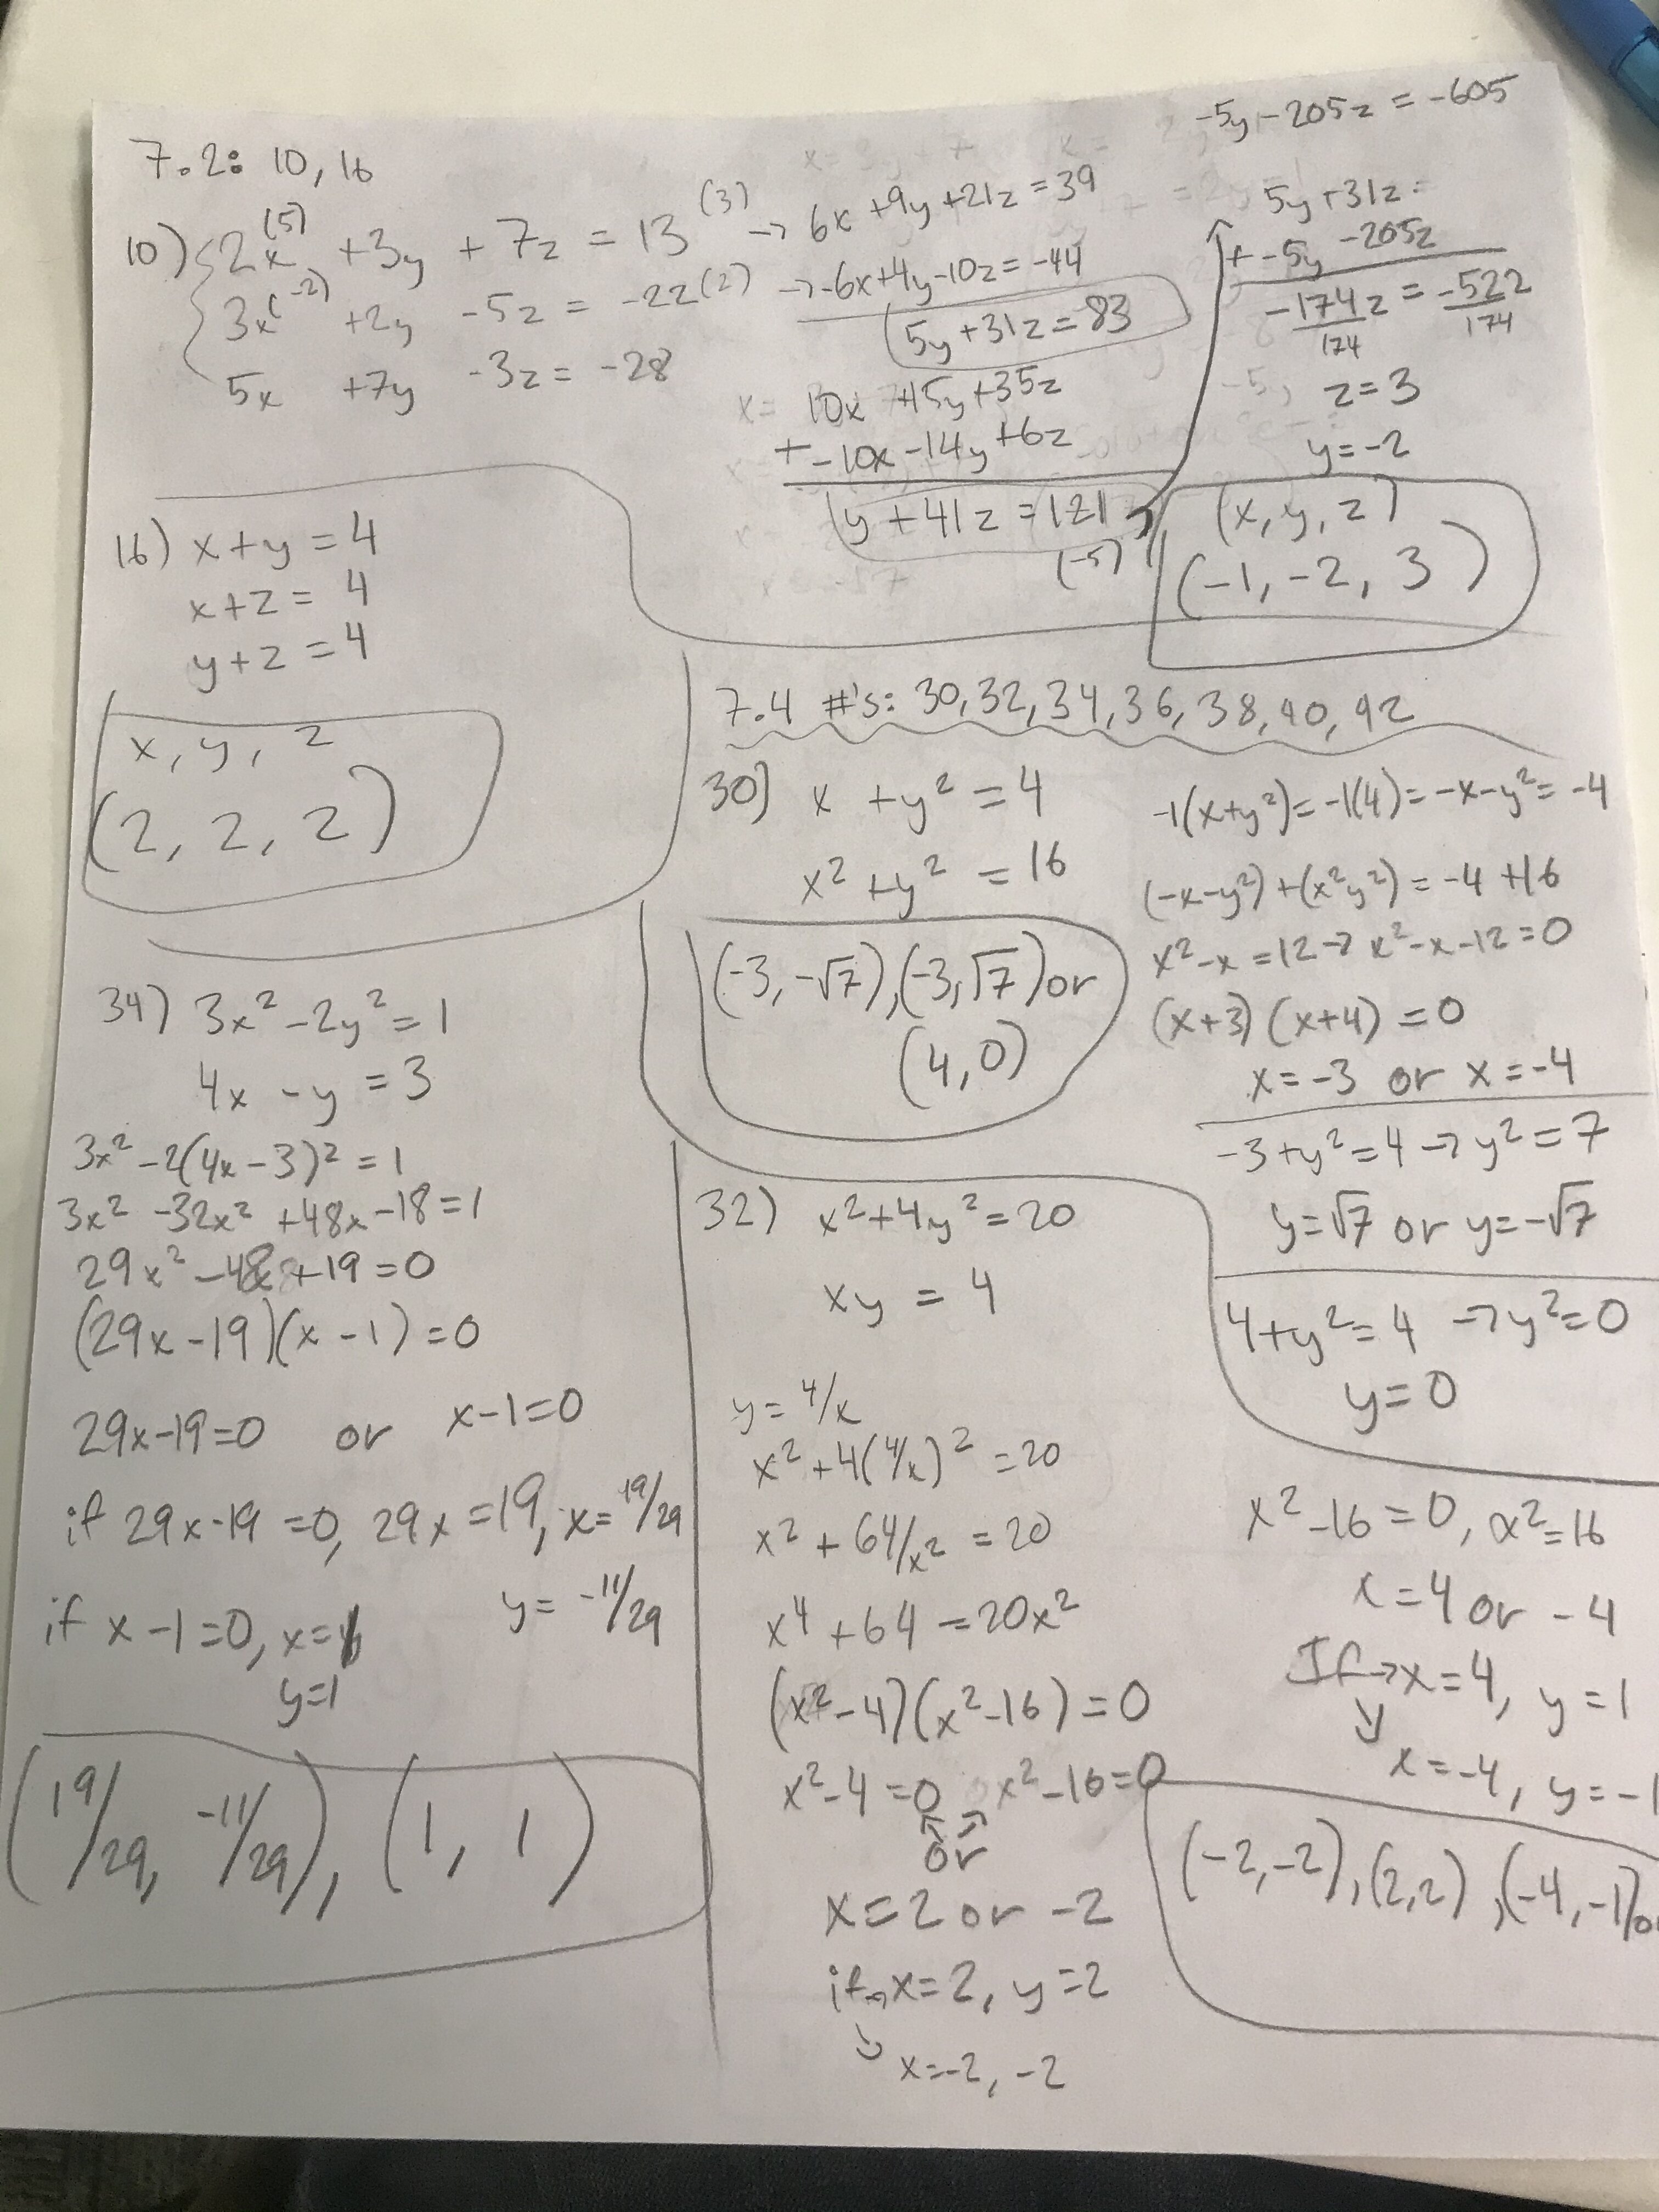 7.2: 10, 16
10) {2x(5) +3y + 7z = 13 (3) → 6x +9y +21z = 39
3x(-2) +2y -5z = -22 (2) → -6x+4y-10z = -44
5x +7y -3z = -28
5y+31z = 83
10x +15y+35z
+ -10x -14y +6z
y + 41z = 121
(-5)
-5y - 205z = -605
5y +31z =
+ -5y -205z
-174z = -522
174 174
z = 3
y = -2
(x, y, z)
(-1, -2, 3)
16) x + y = 4
x + z = 4
y + z = 4
x, y, z
(2, 2, 2)
7.4 #'s: 30, 32, 34, 36, 38, 40, 42
30) x + y² = 4
x² + y² = 16
(-3, -√7), (-3, √7) or
(4, 0)
-1(x+y²) = -1(4) = -x-y² = -4
(-x-y²) + (x²y²) = -4 +16
x² - x = 12 → x² - x - 12 = 0
(x+3) (x+4) = 0
x = -3 or x = -4
-3 + y² = 4 → y² = 7
y = √7 or y = -√7
4 + y² = 4 → y² = 0
y = 0
34) 3x² - 2y² = 1
4x - y = 3
3x² - 2(4x - 3)² = 1
3x² - 32x² + 48x - 18 = 1
29x² - 48x + 19 = 0
(29x - 19)(x - 1) = 0
29x - 19 = 0 or x - 1 = 0
if 29x - 19 = 0, 29x = 19, x = 19/29
y = -11/29
if x - 1 = 0, x = 1
y = 1
(19/29, -11/29), (1, 1)
32) x² + 4y² = 20
xy = 4
y = 4/x
x² + 4(4/x)² = 20
x² + 64/x² = 20
x⁴ + 64 = 20x²
(x² - 4)(x² - 16) = 0
x² - 4 = 0 x² - 16 = 0
or
x = 2 or -2
if → x = 2, y = 2
↓ x = -2, -2
x² - 16 = 0, x² = 16
x = 4 or -4
If → x = 4, y = 1
↓ x = -4, y = -1
(-2, -2), (2, 2), (-4, -1) or